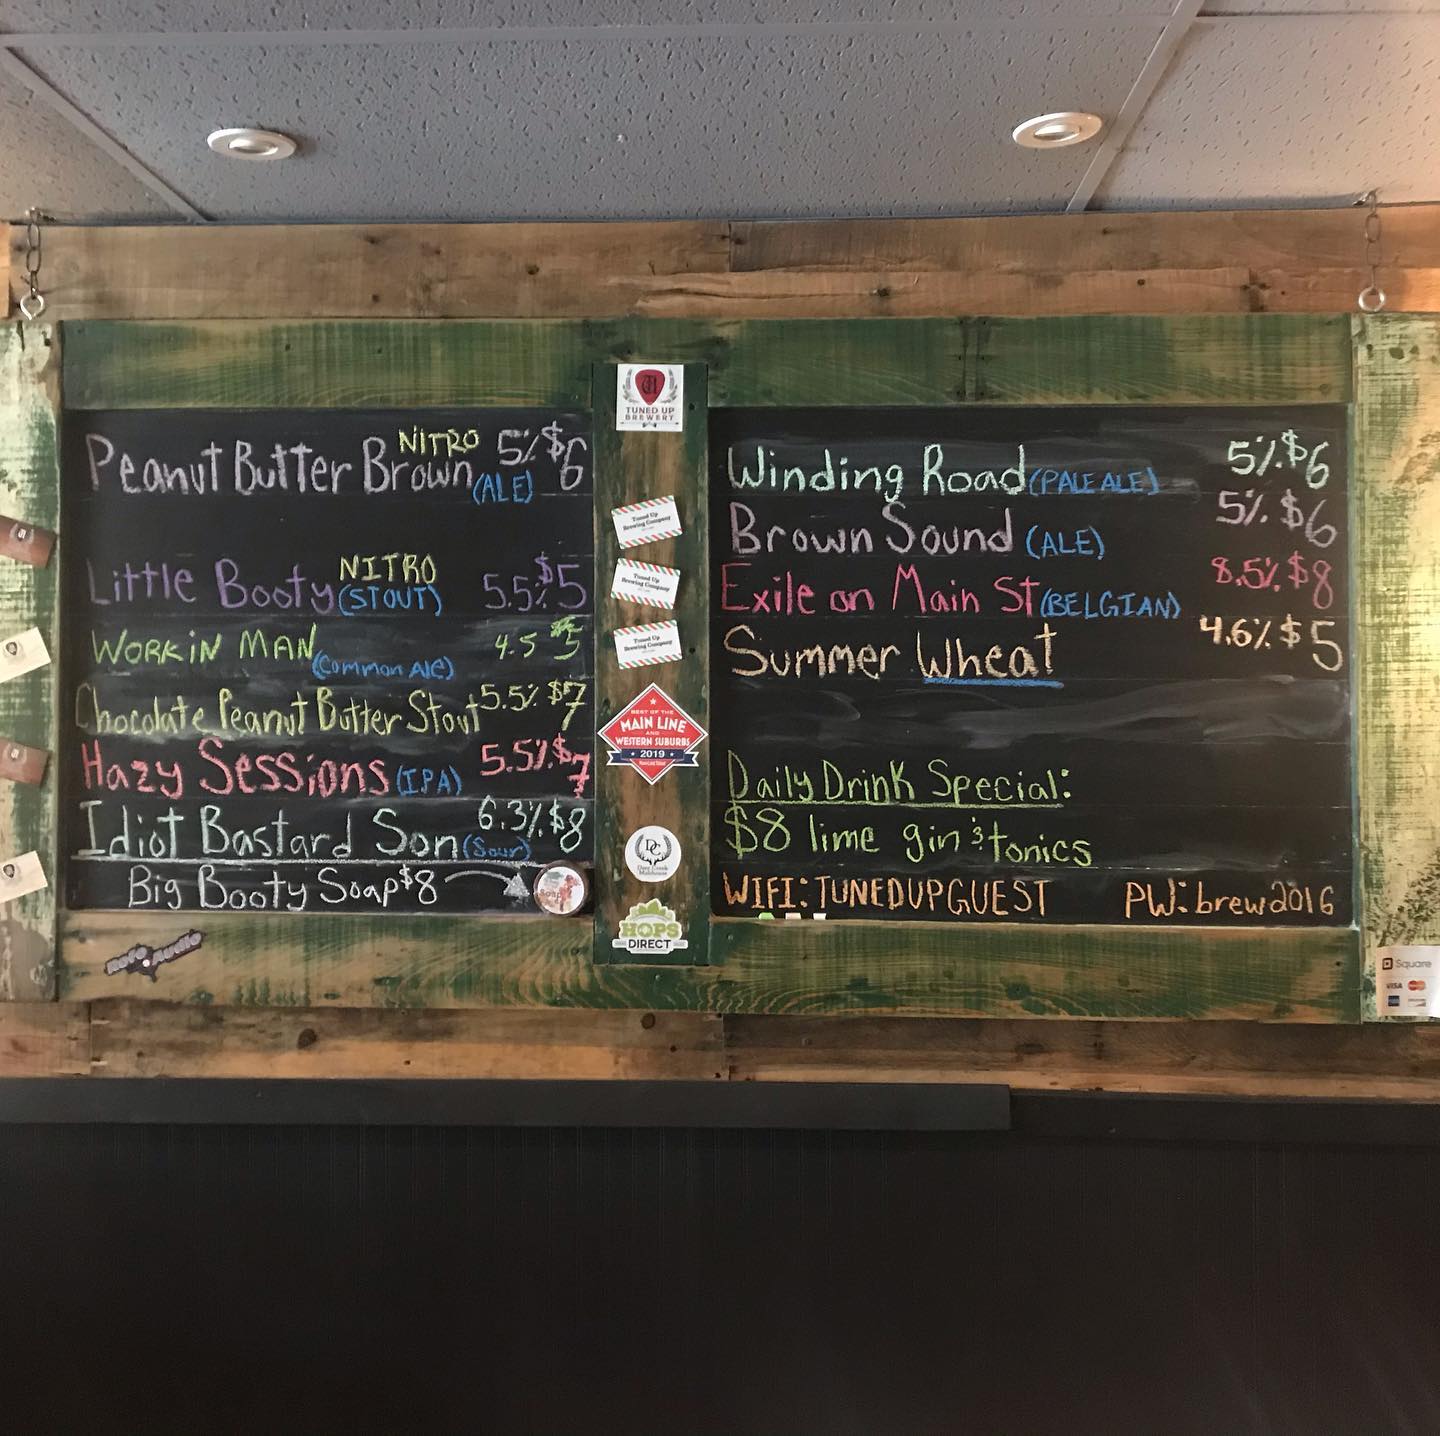 Peanut Butter Brown NITRO (ALE) 5% $6
Little Booty NITRO (STOUT) 5.5% $5
WORKIN MAN (Common Ale) 4.5 $5
Chocolate Peanut Butter Stout 5.5% $7
Hazy Sessions (IPA) 5.5% $7
Idiot Bastard Son (Sour) 6.3% $8
Big Booty Soap $8
TUNED UP
BREWERY
Tuned Up
Brewing Company
Tuned Up
Brewing Company
Tuned Up
Brewing Company
BEST OF THE
MAIN LINE
AND
WESTERN SUBURBS
2019
DC
Deer Creek
Malthouse
HOPS
DIRECT
Winding Road (PALE ALE) 5% $6
Brown Sound (ALE) 5% $6
Exile on Main St (BELGIAN) 8.5% $8
Summer Wheat 4.6% $5
Daily Drink Special:
$8 lime gin & tonics
WIFI: TUNEDUPGUEST PW: brew2016
Square
VISA